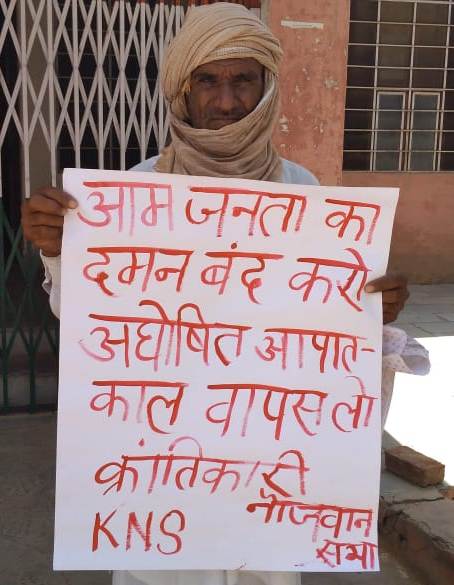 आम जनता का
दमन बंद करो
अघोषित आपात-
काल वापस लो
क्रांतिकारी
नौजवान
सभा
KNS